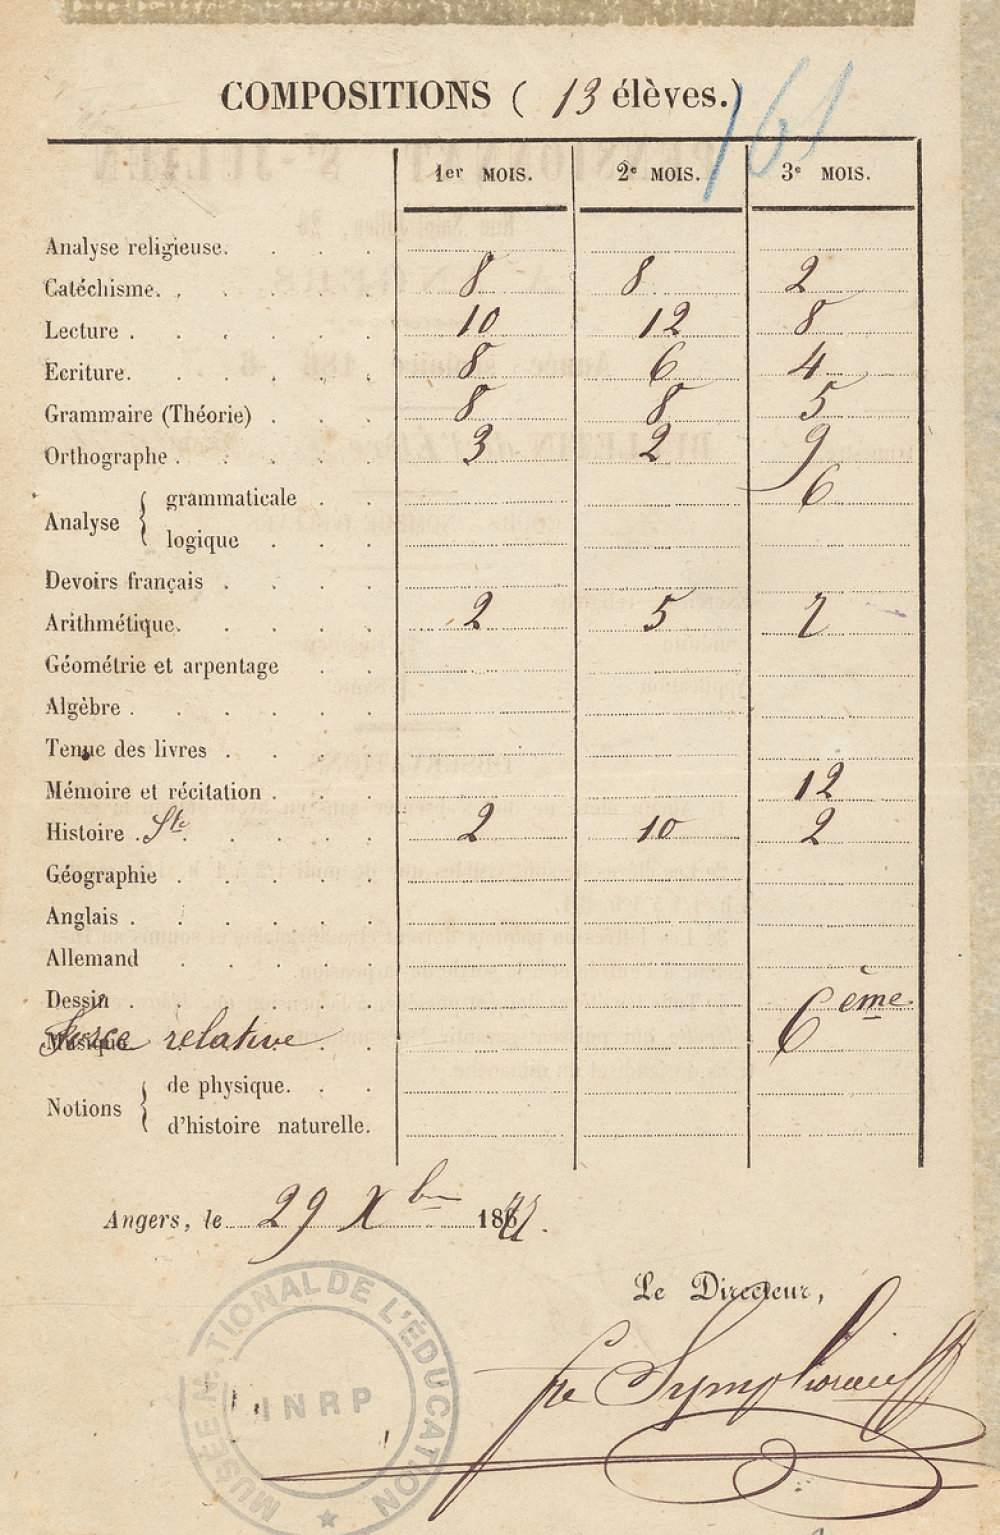 161
COMPOSITIONS ( 13 élèves.)
1er MOIS. 2e MOIS. 3e MOIS.
Analyse religieuse.
Catéchisme. 8 8 2
Lecture 10 12 8
Ecriture. 8 6 4
Grammaire (Théorie) 8 8 5
Orthographe 3 2 9
Analyse { grammaticale 6
logique
Devoirs français
Arithmétique. 2 5 7
Géométrie et arpentage
Algèbre
Tenue des livres
Mémoire et récitation 12
Histoire Ste 2 10 2
Géographie
Anglais
Allemand
Dessin
Musique Force relative 6ème
Notions { de physique.
d'histoire naturelle.
Angers, le 29 Xbre 186
Le Directeur,
fre Symphorien
MUSÉE NATIONAL DE L'ÉDUCATION
INRP